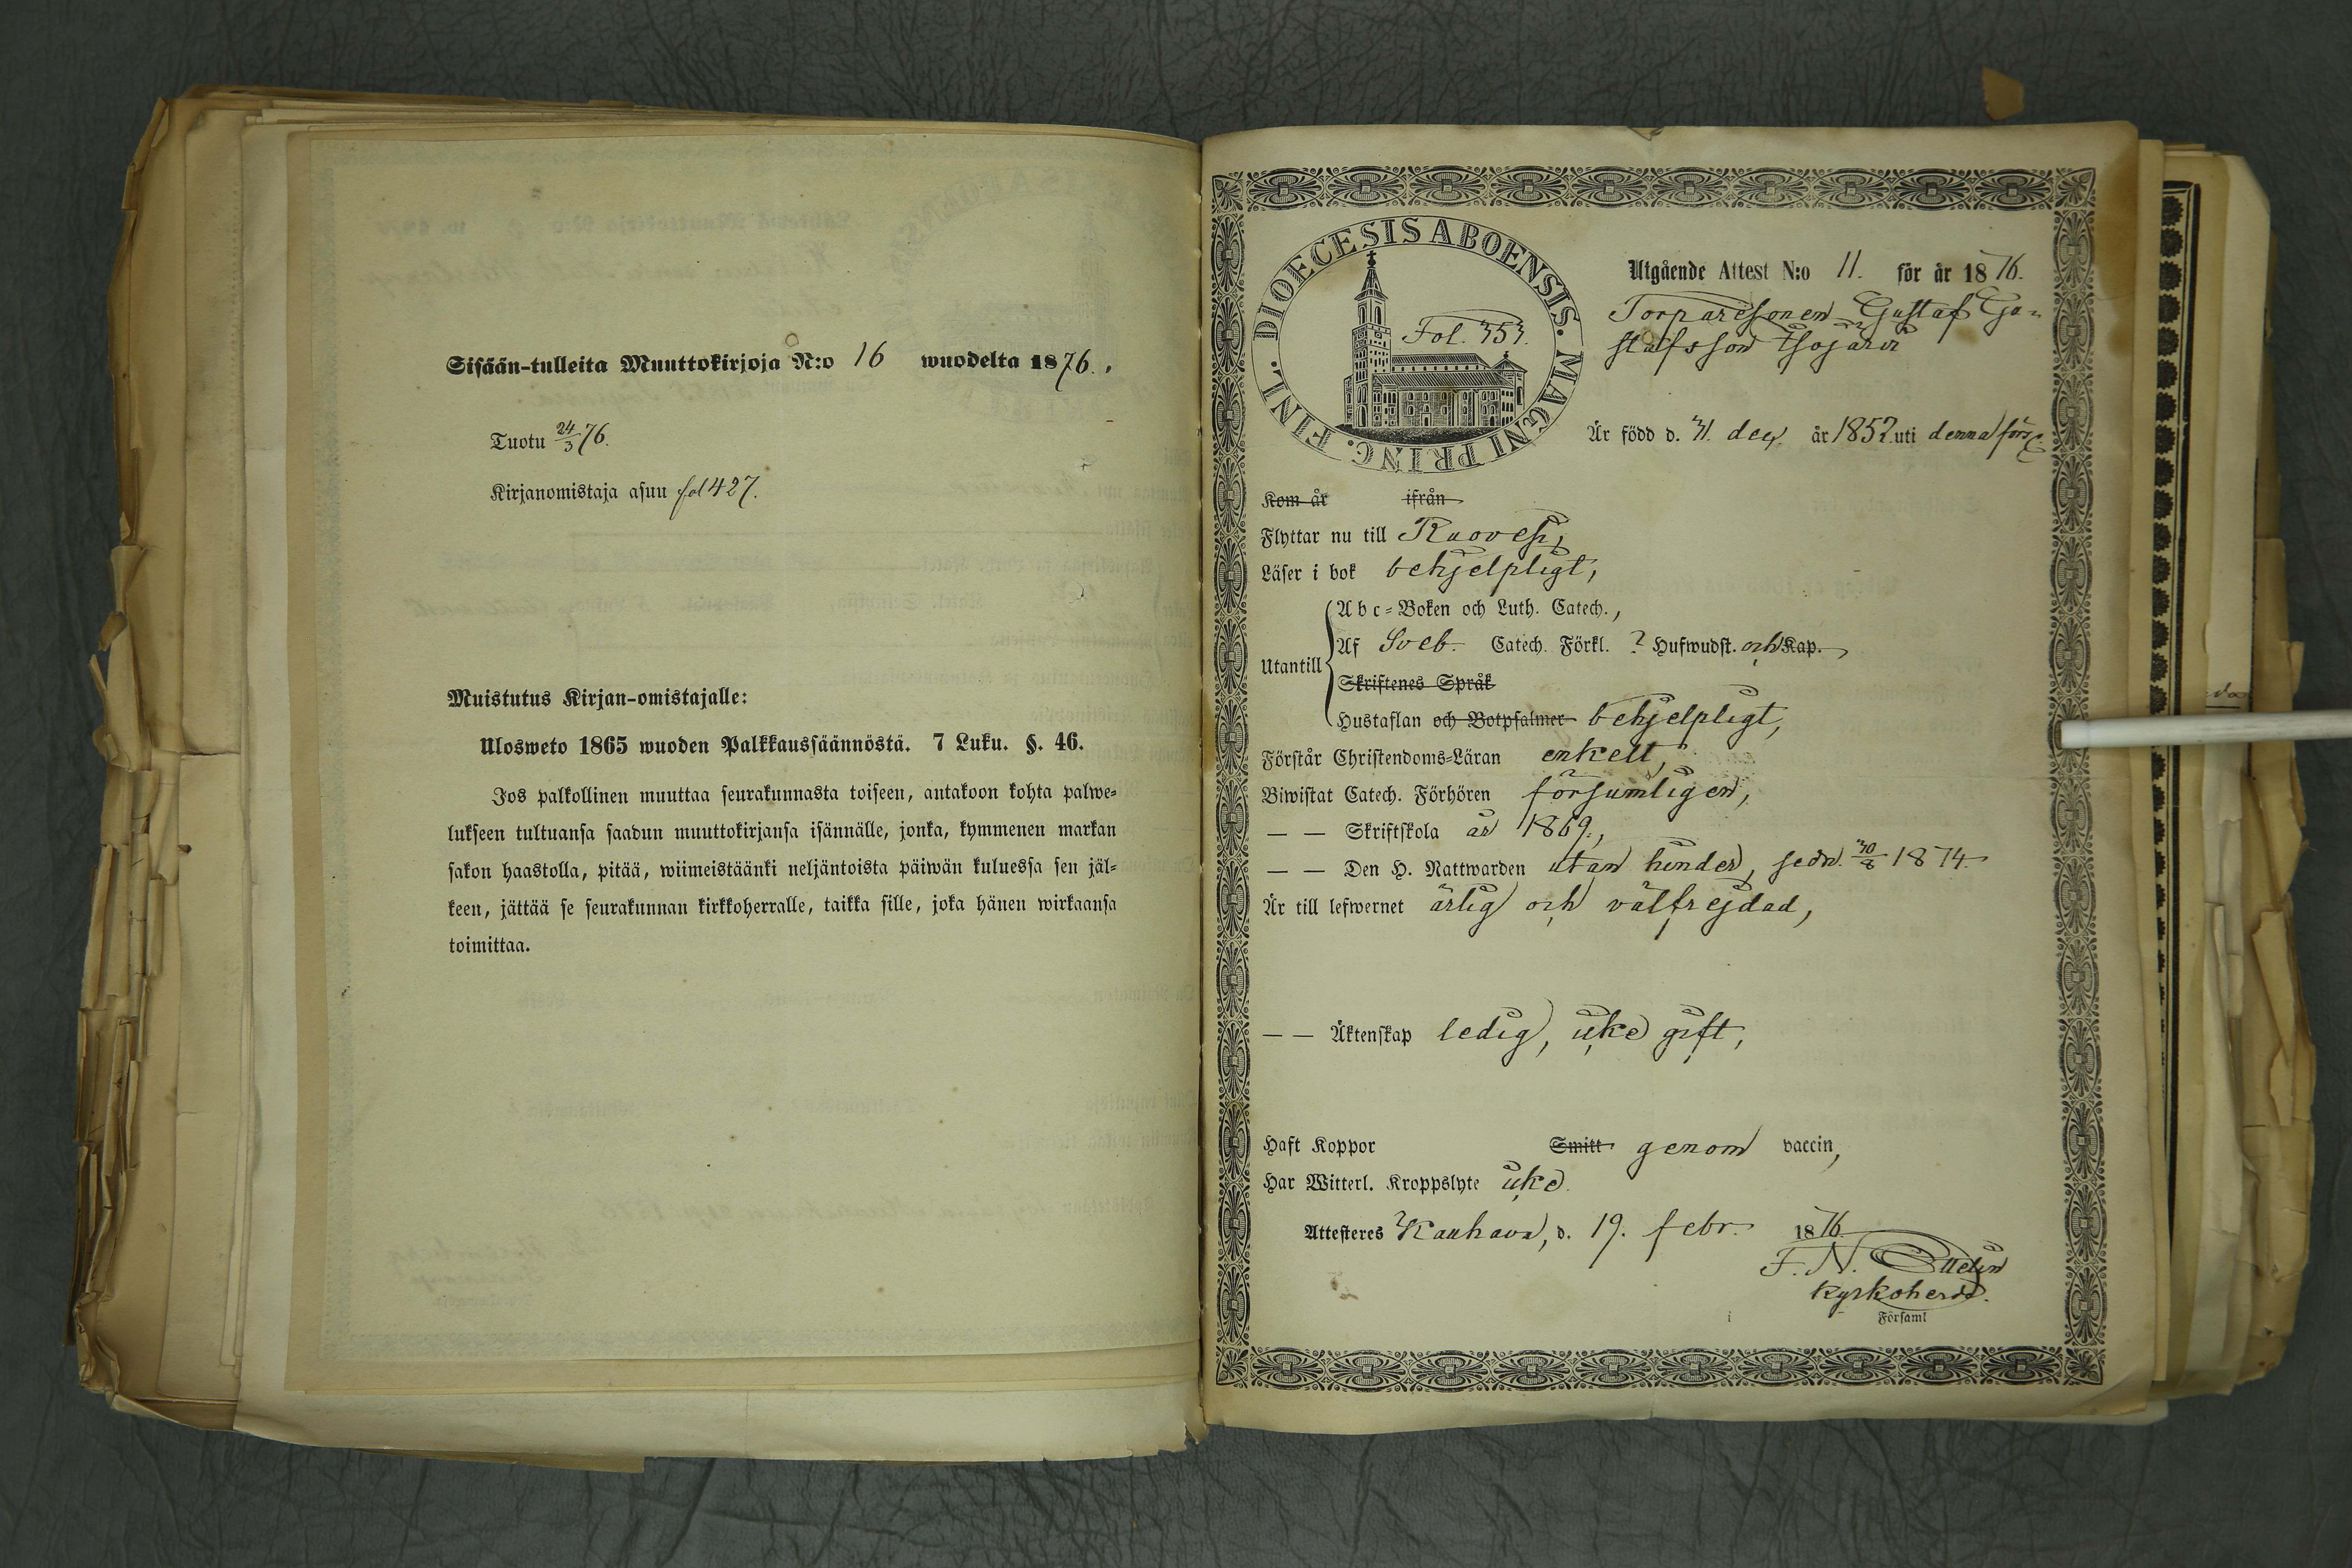 Sisään-tulleita Muuttokirjoja N:o 16 wuodelta 1876.
Tuotu 24/3 76.
Kirjanomistaja asuu fol 427.
Muistutus Kirjan-omistajalle:
Ulosweto 1865 wuoden Palkkaussäännöstä. 7 Luku. §. 46.
Jos palkollinen muuttaa seurakunnasta toiseen, antakoon kohta palwe-
lukseen tultuansa saadun muuttokirjansa isännälle, jonka, kymmenen markan
sakon haastolla, pitää, wiimeistäänki neljäntoista päiwän kuluessa sen jäl-
keen, jättää se seurakunnan kirkkoherralle, taikka sille, joka hänen wirkaansa
toimittaa.
DIOECESIS ABOENSIS. MAGNI PRINC. FINL.
Fol. 353.
Utgående Attest N:o 11. för år 1876.
Torparesonen Gustaf Gu-
stafsson Isojärvi
Är född d. 31. dec. år 1852 uti denna förs.
Kom år ifrån
Flyttar nu till Ruovesi,
Läser i bok behjelpligt,
Utantill
Abc-Boken och Luth. Catech.,
Af Sveb. Catech. Förkl. 2 Hufwudst. och Kap.
Skriftenes Språk
Hustaflan och Botpsalmer behjelpligt,
Förstår Christendoms-Läran enkelt,
Biwistat Catech. Förhören försumligen,
— — Skriftskola år 1869,
— — Den H. Nattwarden utan hinder, sedn. 30/8 1874
Är till lefwernet ärlig och välfrejdad,
— — Äktenskap ledig, icke gift,
Haft Koppor Smitt genom vaccin,
Har Witterl. Kroppslyte icke.
Attesteres Kauhava, d. 19. febr. 1876
F. N.
Kyrkoherde.
i Församl